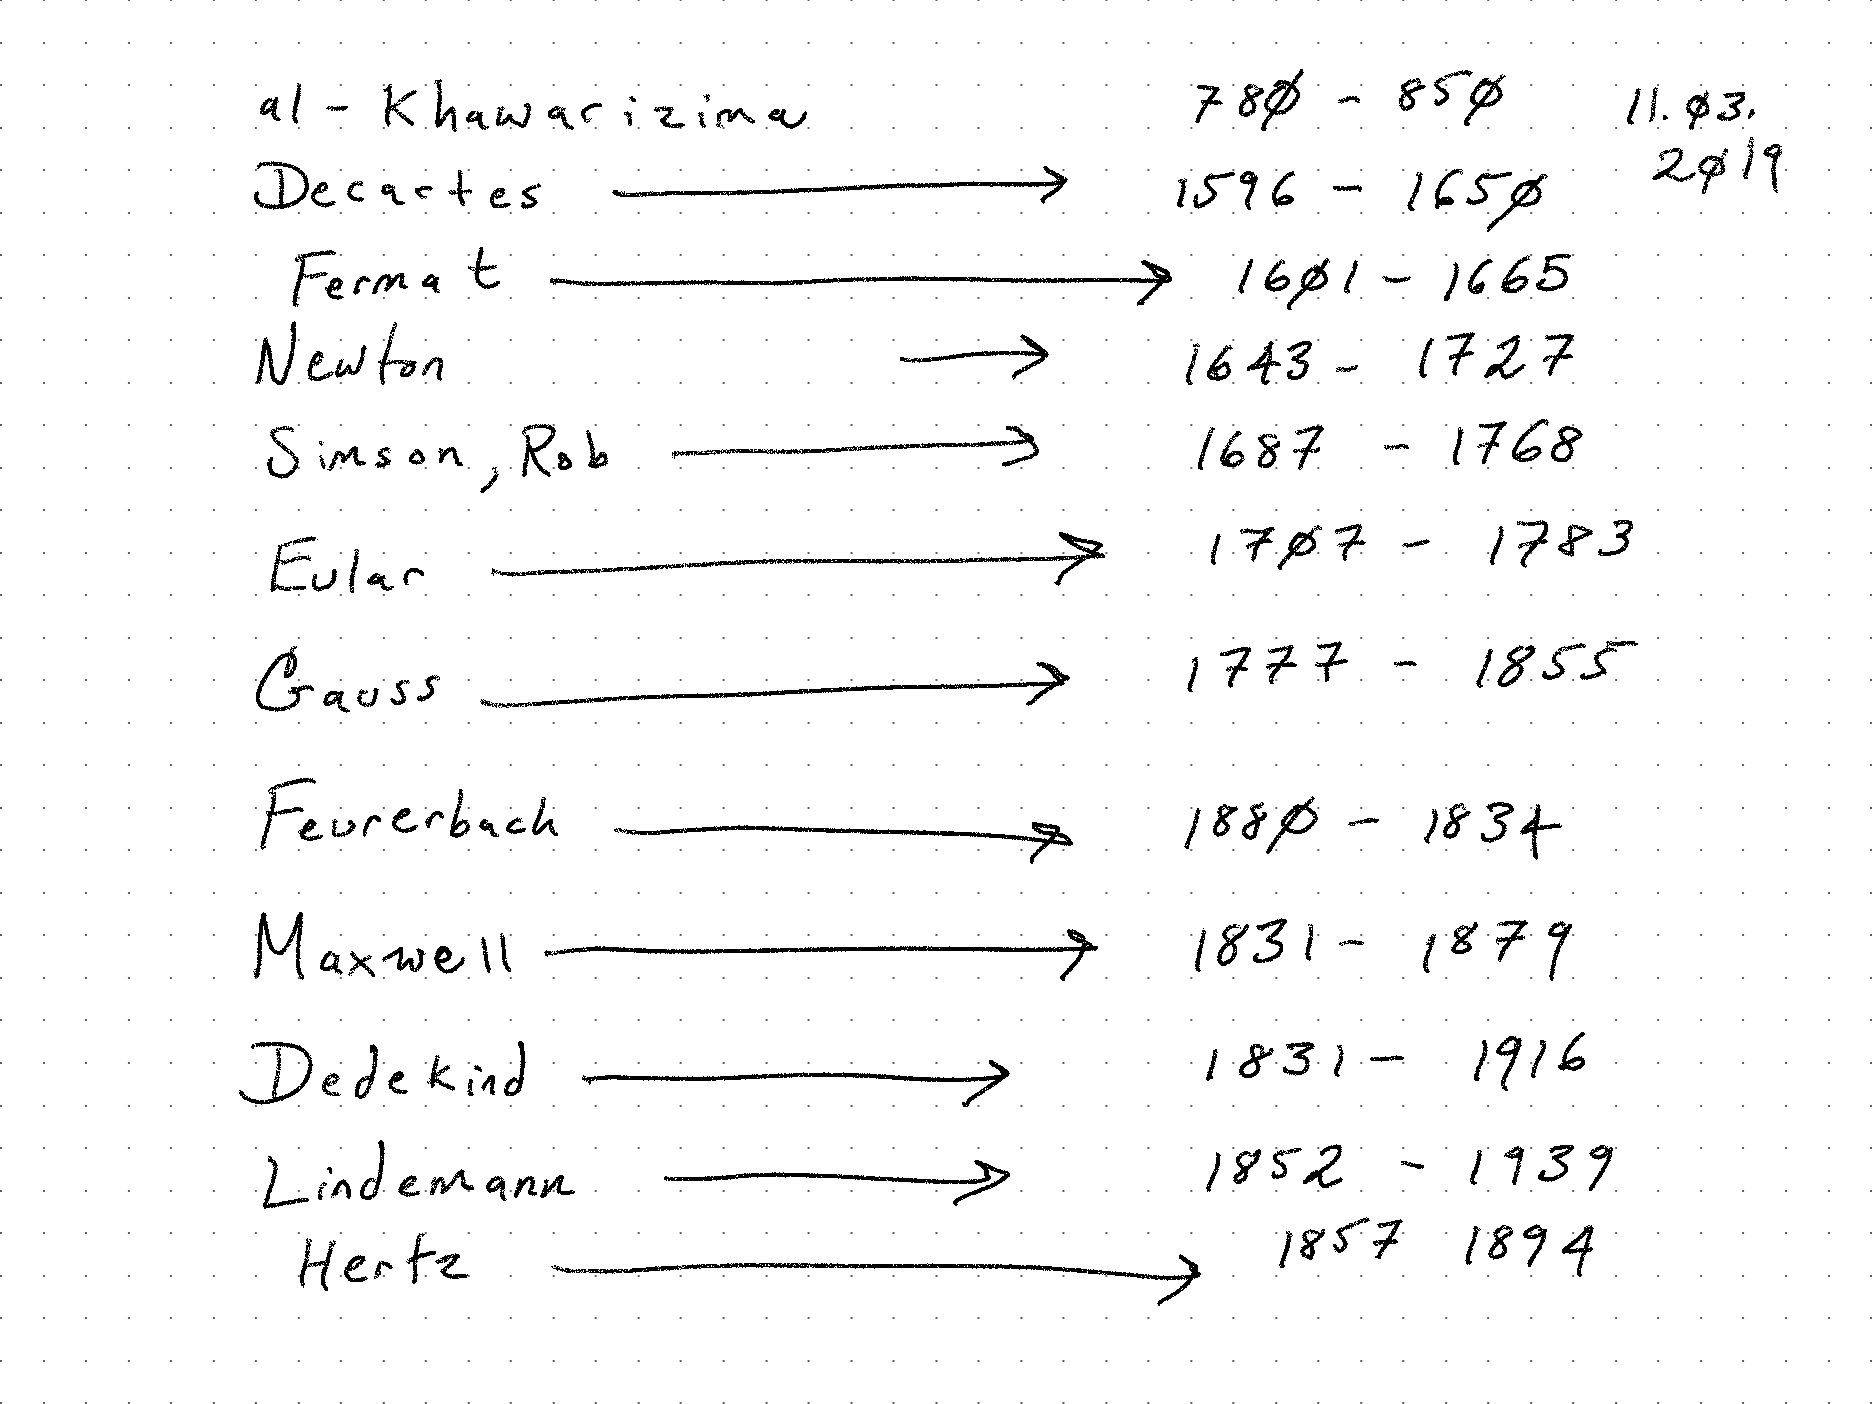 al - Khawarizima 780 - 850 11.03.
2019
Decartes → 1596 - 1650
Fermat → 1601 - 1665
Newton → 1643 - 1727
Simson, Rob → 1687 - 1768
Eular → 1707 - 1783
Gauss → 1777 - 1855
Feurerbach → 1880 - 1834
Maxwell → 1831 - 1879
Dedekind → 1831 - 1916
Lindemann → 1852 - 1939
Hertz → 1857 1894